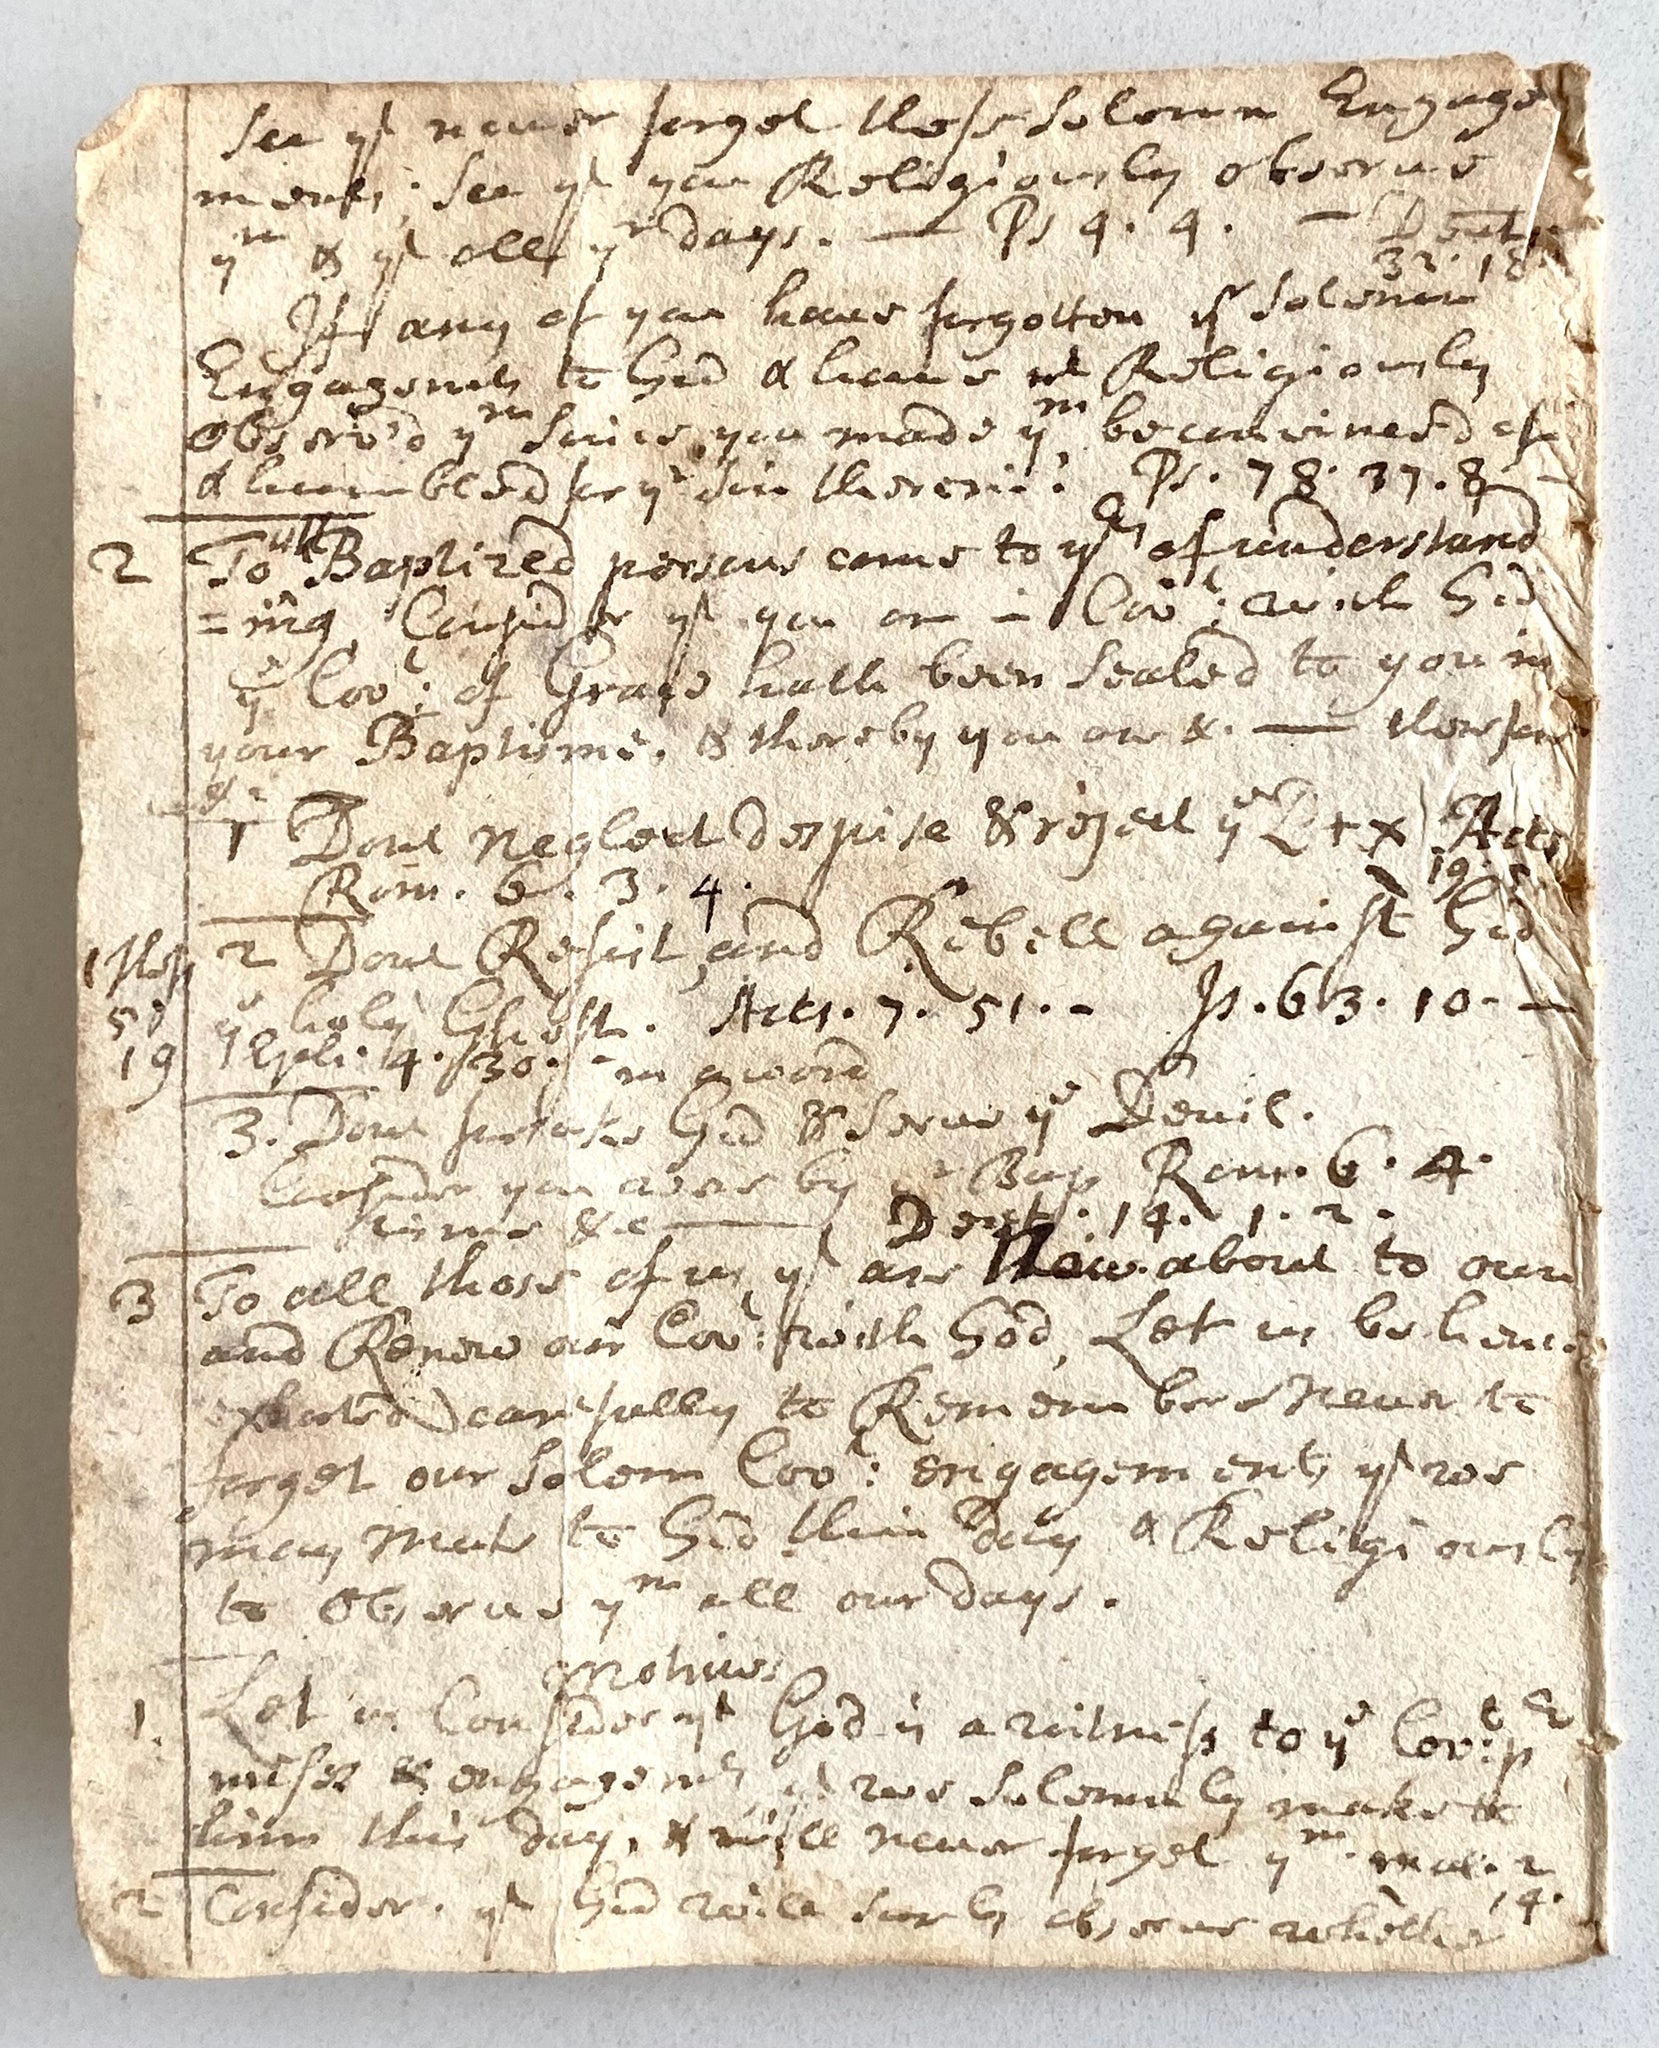 See yt never forget these Solemn Engage
ments; See yt you Religiously observe
ym & yt all yr days. — Ps 4. 4. — Deut.
32. 18.
If any of you have forgotten yr Solemn
Engagemts to God & have nt Religiously
observ'd ym since you made ym be convinced of
& humbled for yr sin therein. Ps. 78. 37. 8 —
2 To all Baptized persons come to yrs of understand
=ing Consider yt you are in Covt: with God
ye Covt: of Grace hath been Sealed to you in
your Baptisme. & thereby you are &. — therfore
1 Dont neglect despise & reject ye Acts
Rom. 6. 3. 4. 19. 5
2 Dont Resist, and Rebell against God
1 Thess
5: 19
ye holy Ghost. Acts. 7. 51. - Is. 63. 10. —
Eph. 4. 30. - in a word
3. Dont forsake God & Serve ye Devil.
Consider you were by yr Bap Rom. 6. 4.
&c — Deut. 14. 1. 2.
3 To all those of us yt are Now about to own
and Renew our Covt: with God, Let us be hence
exhorted carefully to Remember & Never to
forget our Solem Covt: engagements yt we
may Make to God this Day & Religiously
to Observe ym all our days.
Motives
1. Let us Consider yt God is a witness to ye Covt: pro
mises & engagemts yt we Solemnly make to
him this day, & will never forget ym. mal. 2
14.
2 Consider. yt God will surely observe whether